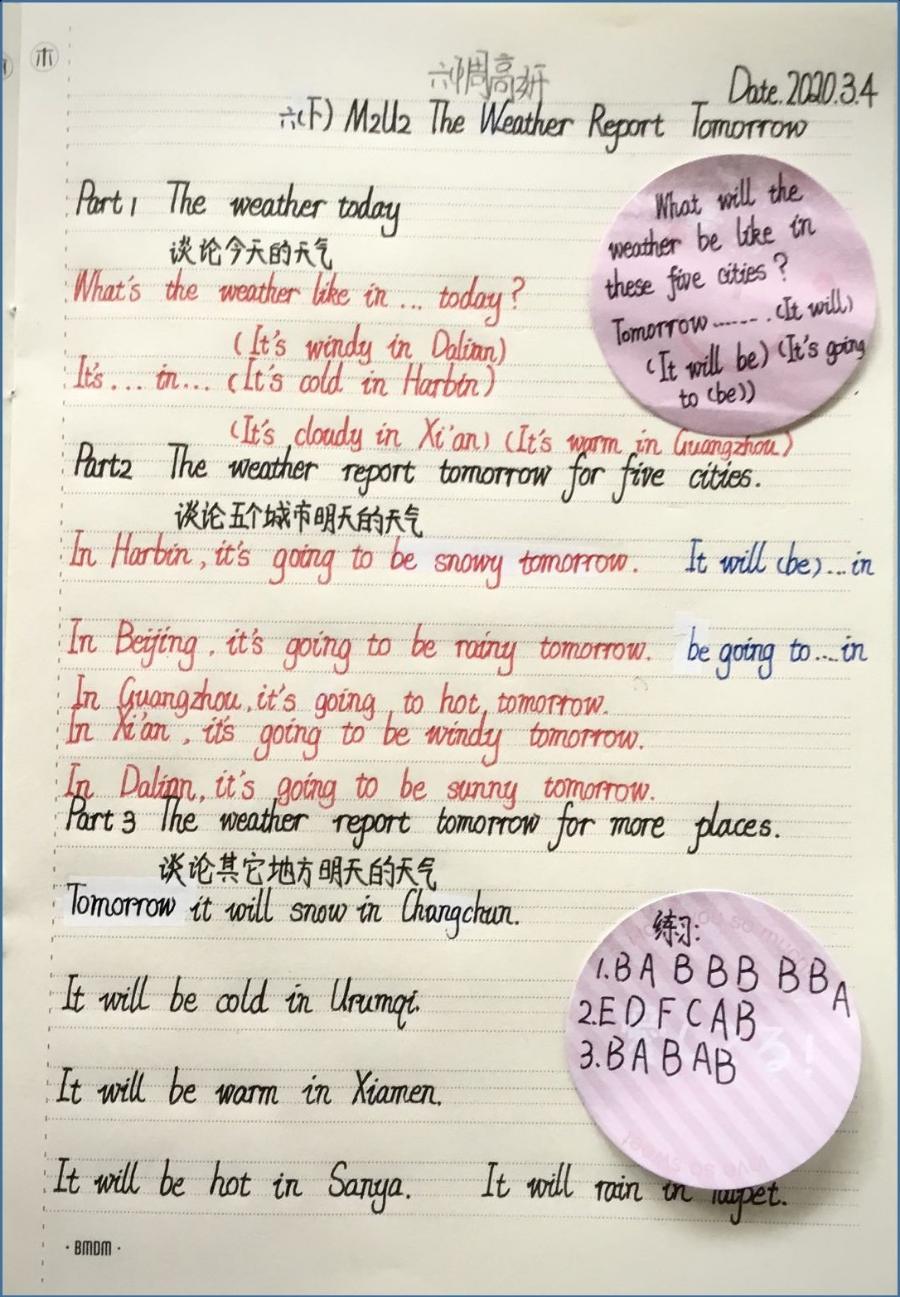 木
周高妍
Date.2020.3.4
六(下) M2U2 The Weather Report Tomorrow
Part 1 The weather today
谈论今天的天气
What's the weather like in ... today?
(It's windy in Dalian)
It's ... in... (It's cold in Harbin)
(It's cloudy in Xi'an) (It's warm in Guangzhou)
What will the
weather be like in
these five cities?
Tomorrow ------- . (It will)
(It will be) (It's going
to (be))
Part2 The weather report tomorrow for five cities.
谈论五个城市明天的天气
In Harbin, it's going to be snowy tomorrow. It will (be)...in
In Beijing, it's going to be rainy tomorrow. be going to....in
In Guangzhou, it's going to hot tomorrow.
In Xi'an, it's going to be windy tomorrow.
In Dalian, it's going to be sunny tomorrow.
Part 3 The weather report tomorrow for more places.
谈论其它地方明天的天气
Tomorrow it will snow in Changchun.
It will be cold in Urumqi.
It will be warm in Xiamen.
It will be hot in Sanya. It will rain in Taipei.
练习:
1.B A B B B B B A
2.E D F C A B
3.B A B A B
·BMDM·